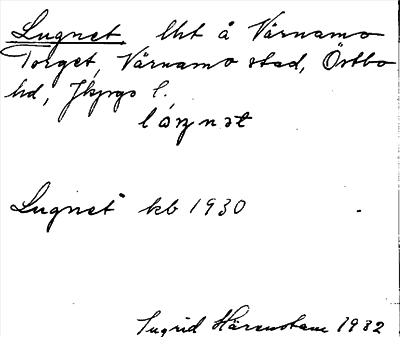 Lugnet, lht å Värnamo
Torget, Värnamo stad, Östbo
hd, Jkpgs l.
Lugnet kb 1930
Ingrid 1932